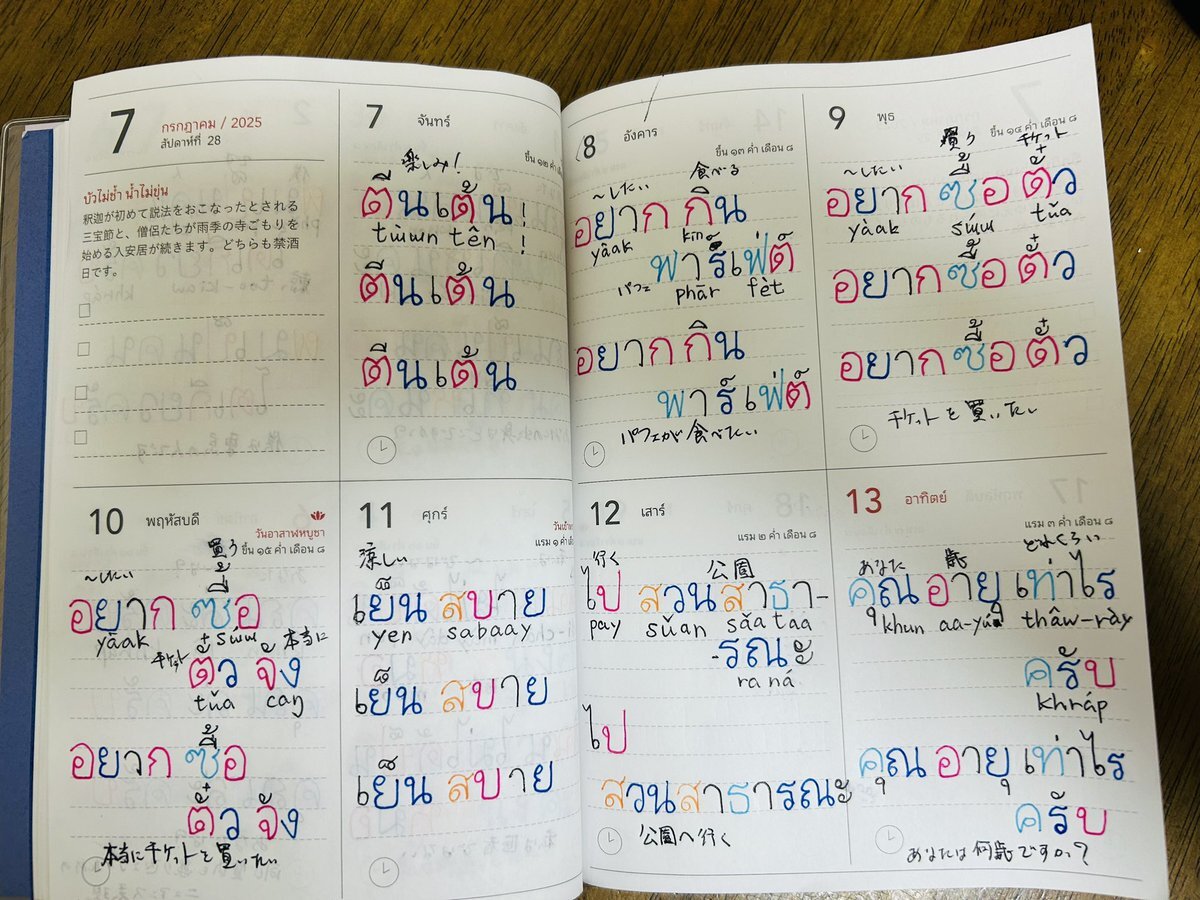 7
กรกฎาคม / 2025
สัปดาห์ที่ 28
บัวไม่ช้ำ น้ำไม่ขุ่น
釈迦が初めて説法をおこなったとされる
三宝節と、僧侶たちが雨季の寺ごもりを
始める入安居が続きます。どちらも禁酒
日です。
7 จันทร์
ขึ้น ๑๒ ค่ำ เดือน
楽しみ!
ตีนเต้น!
tɯ̀ɯn tên!
ตีนเต้น
ตีนเต้น
8 อังคาร
ขึ้น ๑๓ ค่ำ เดือน ๘
〜したい 食べる
อยาก กิน
yâak kin
พาร์เฟ่ต์
パフェ phār fèt
อยาก กิน
พาร์เฟ่ต์
パフェが食べたい
9 พุธ
ขึ้น ๑๔ ค่ำ เดือน ๘
〜したい 買う チケット
อยาก ซื้อ ตั๋ว
yàak sɯ́ɯ tǔa
อยาก ซื้อ ตั๋ว
อยาก ซื้อ ตั๋ว
チケットを買いたい
10 พฤหัสบดี
วันอาสาฬหบูชา
ขึ้น ๑๕ ค่ำ เดือน ๘
〜したい 買う
อยาก ซื้อ
yāak sɯ́ɯ
チケット 本当に
ตั๋ว จัง
tǔa caŋ
อยาก ซื้อ
ตั๋ว จัง
本当にチケットを買いたい
11 ศุกร์
วันเข้า
แรม ๑ ค่ำ
涼しい
เย็น สบาย
yen sabaay
เย็น สบาย
เย็น สบาย
12 เสาร์
แรม ๒ ค่ำ เดือน ๘
行く 公園
ไป สวนสาธา-
pay sǔan sǎataa
-รณะ
raná
ไป
สวนสาธารณะ
公園へ行く
13 อาทิตย์
แรม ๓ ค่ำ เดือน ๘
あなた 歳 どれくらい
คุณ อายุ เท่าไร
khun aa-yú thâw-rày
ครับ
khráp
คุณ อายุ เท่าไร
ครับ
あなたは何歳ですか?